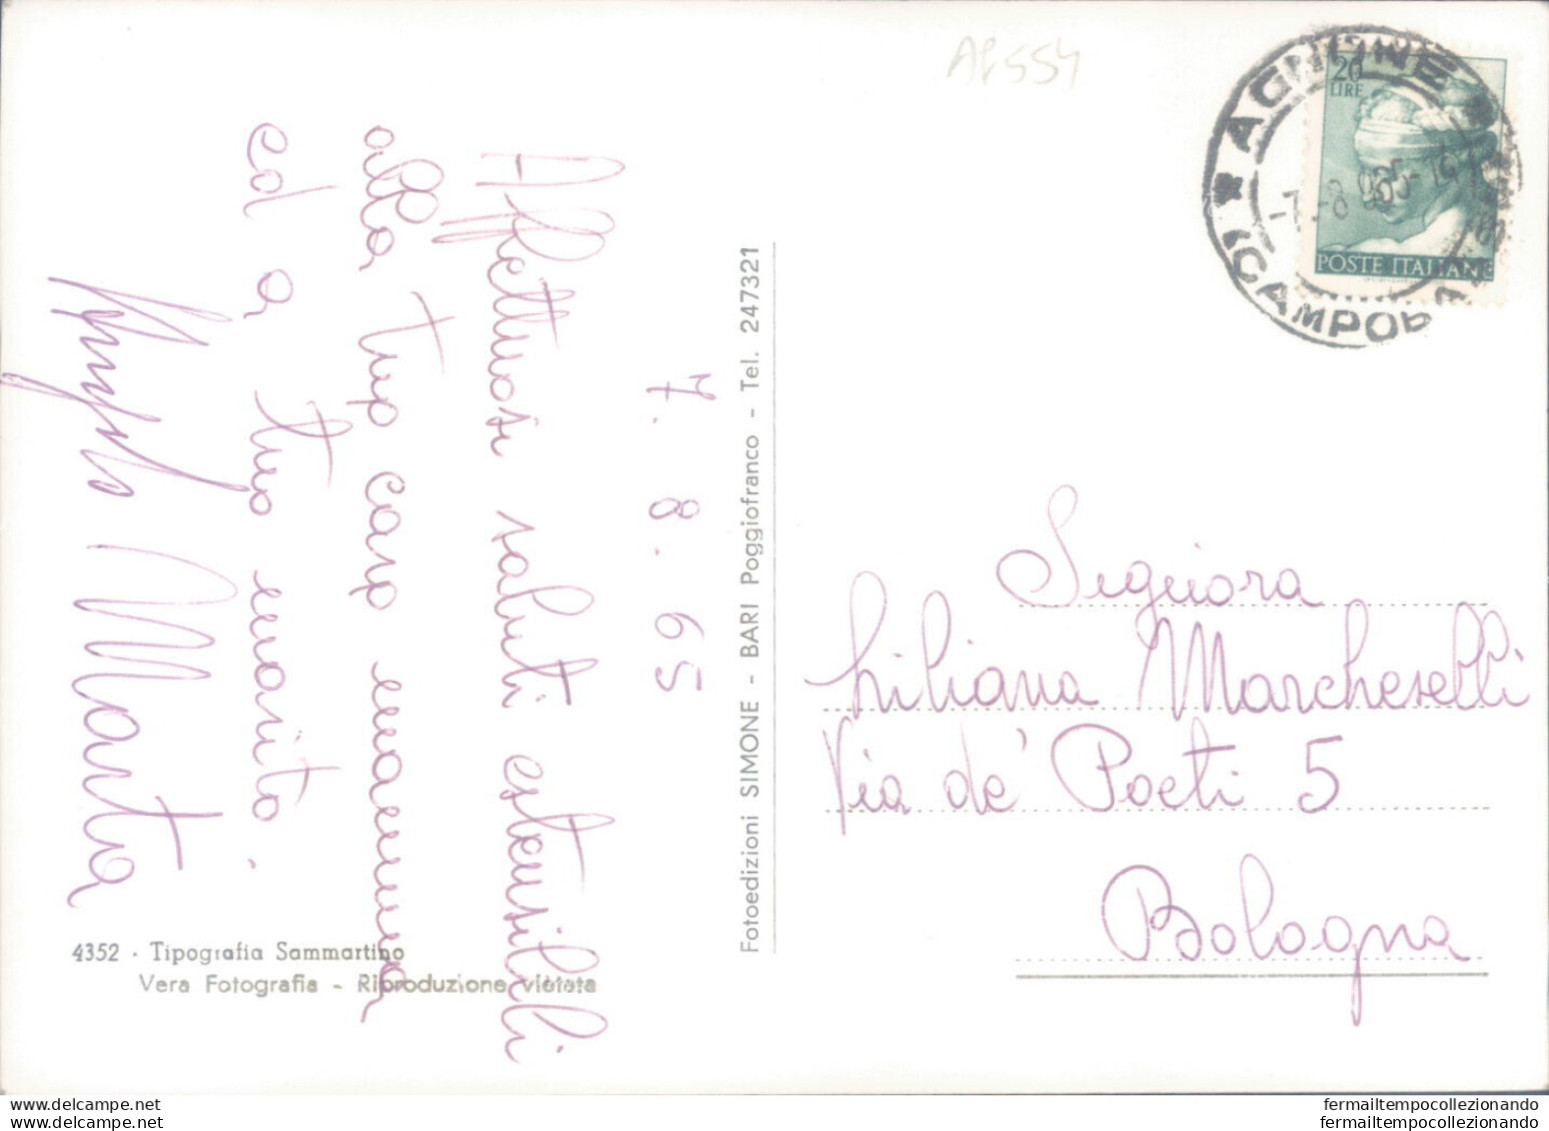 AP554
7. 8. 65
Affettuosi saluti estensibili
alla tua cara mamma
ed a tuo marito.
Angela Marta
4352 - Tipografia Sammartino
Vera Fotografia - Riproduzione vietata
Fotoedizioni SIMONE - BARI Poggiofranco - Tel. 247321
★ AGNONE ★
(CAMPOB
20
LIRE
POSTE ITALIANE
Signora
Liliana Marcheselli
Via de' Poeti 5
Bologna
www.delcampe.net
www.delcampe.net
fermailtempocollezionando
fermailtempocollezionando